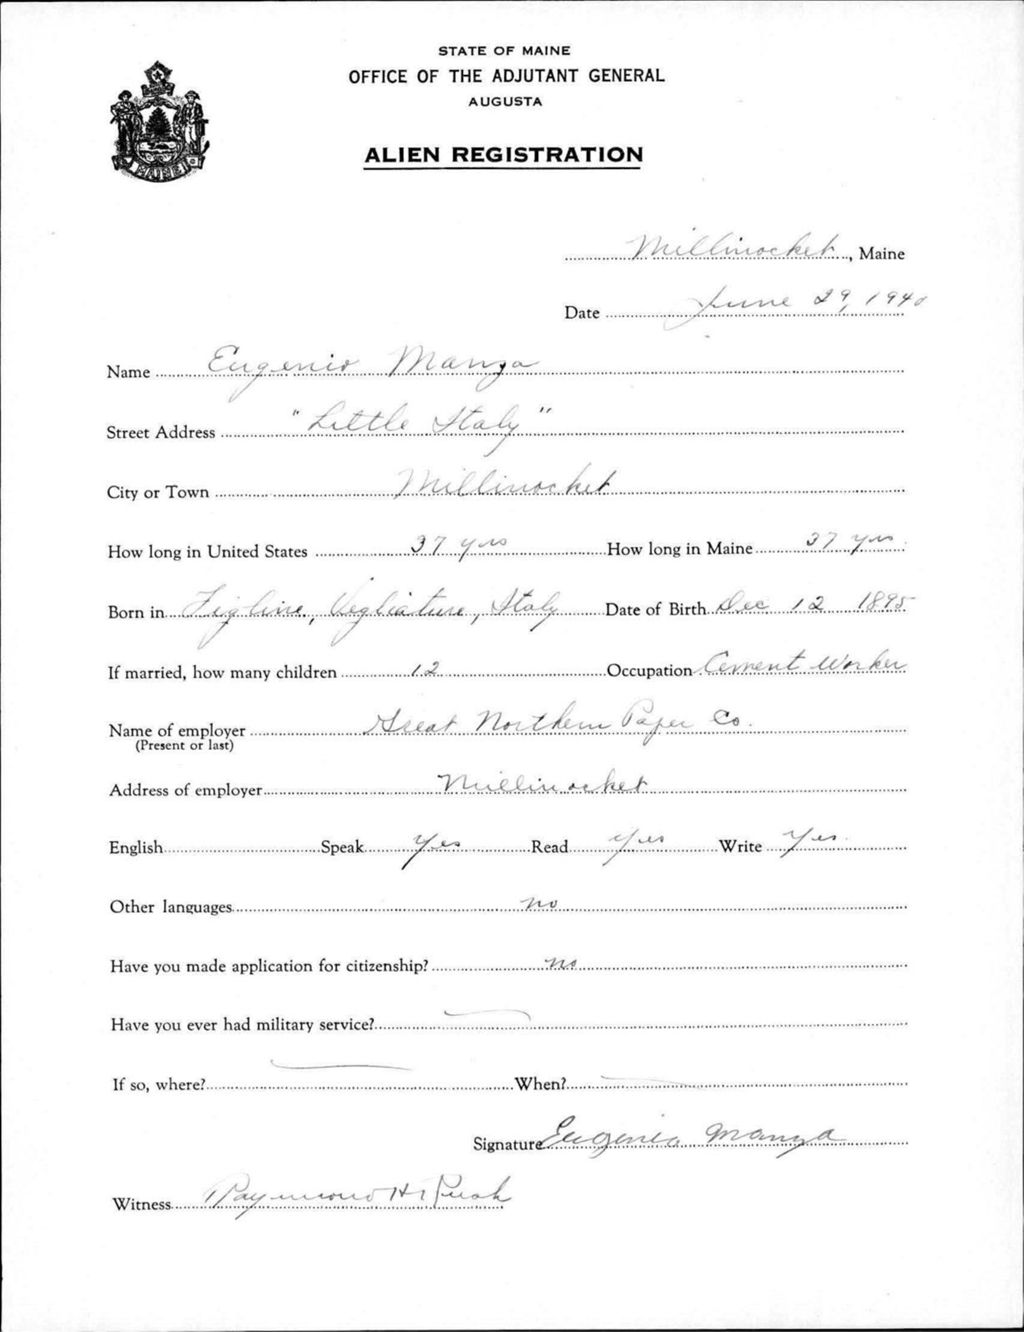 STATE OF MAINE
OFFICE OF THE ADJUTANT GENERAL
AUGUSTA
ALIEN REGISTRATION
Millinocket, Maine
Date June 29, 1940
Name Eugenio Manza
Street Address "Little Italy"
City or Town Millinocket
How long in United States 37 yrs How long in Maine 37 yrs
Born in Figline, Vegliature, Italy Date of Birth Dec 12 1895
If married, how many children 12 Occupation Cement Worker
Name of employer Great Northern Paper Co.
(Present or last)
Address of employer Millinocket
English Speak Yes Read yes Write Yes
Other languages no
Have you made application for citizenship? no
Have you ever had military service?
If so, where? When?
Signature Eugenio Manza
Witness Raymond H